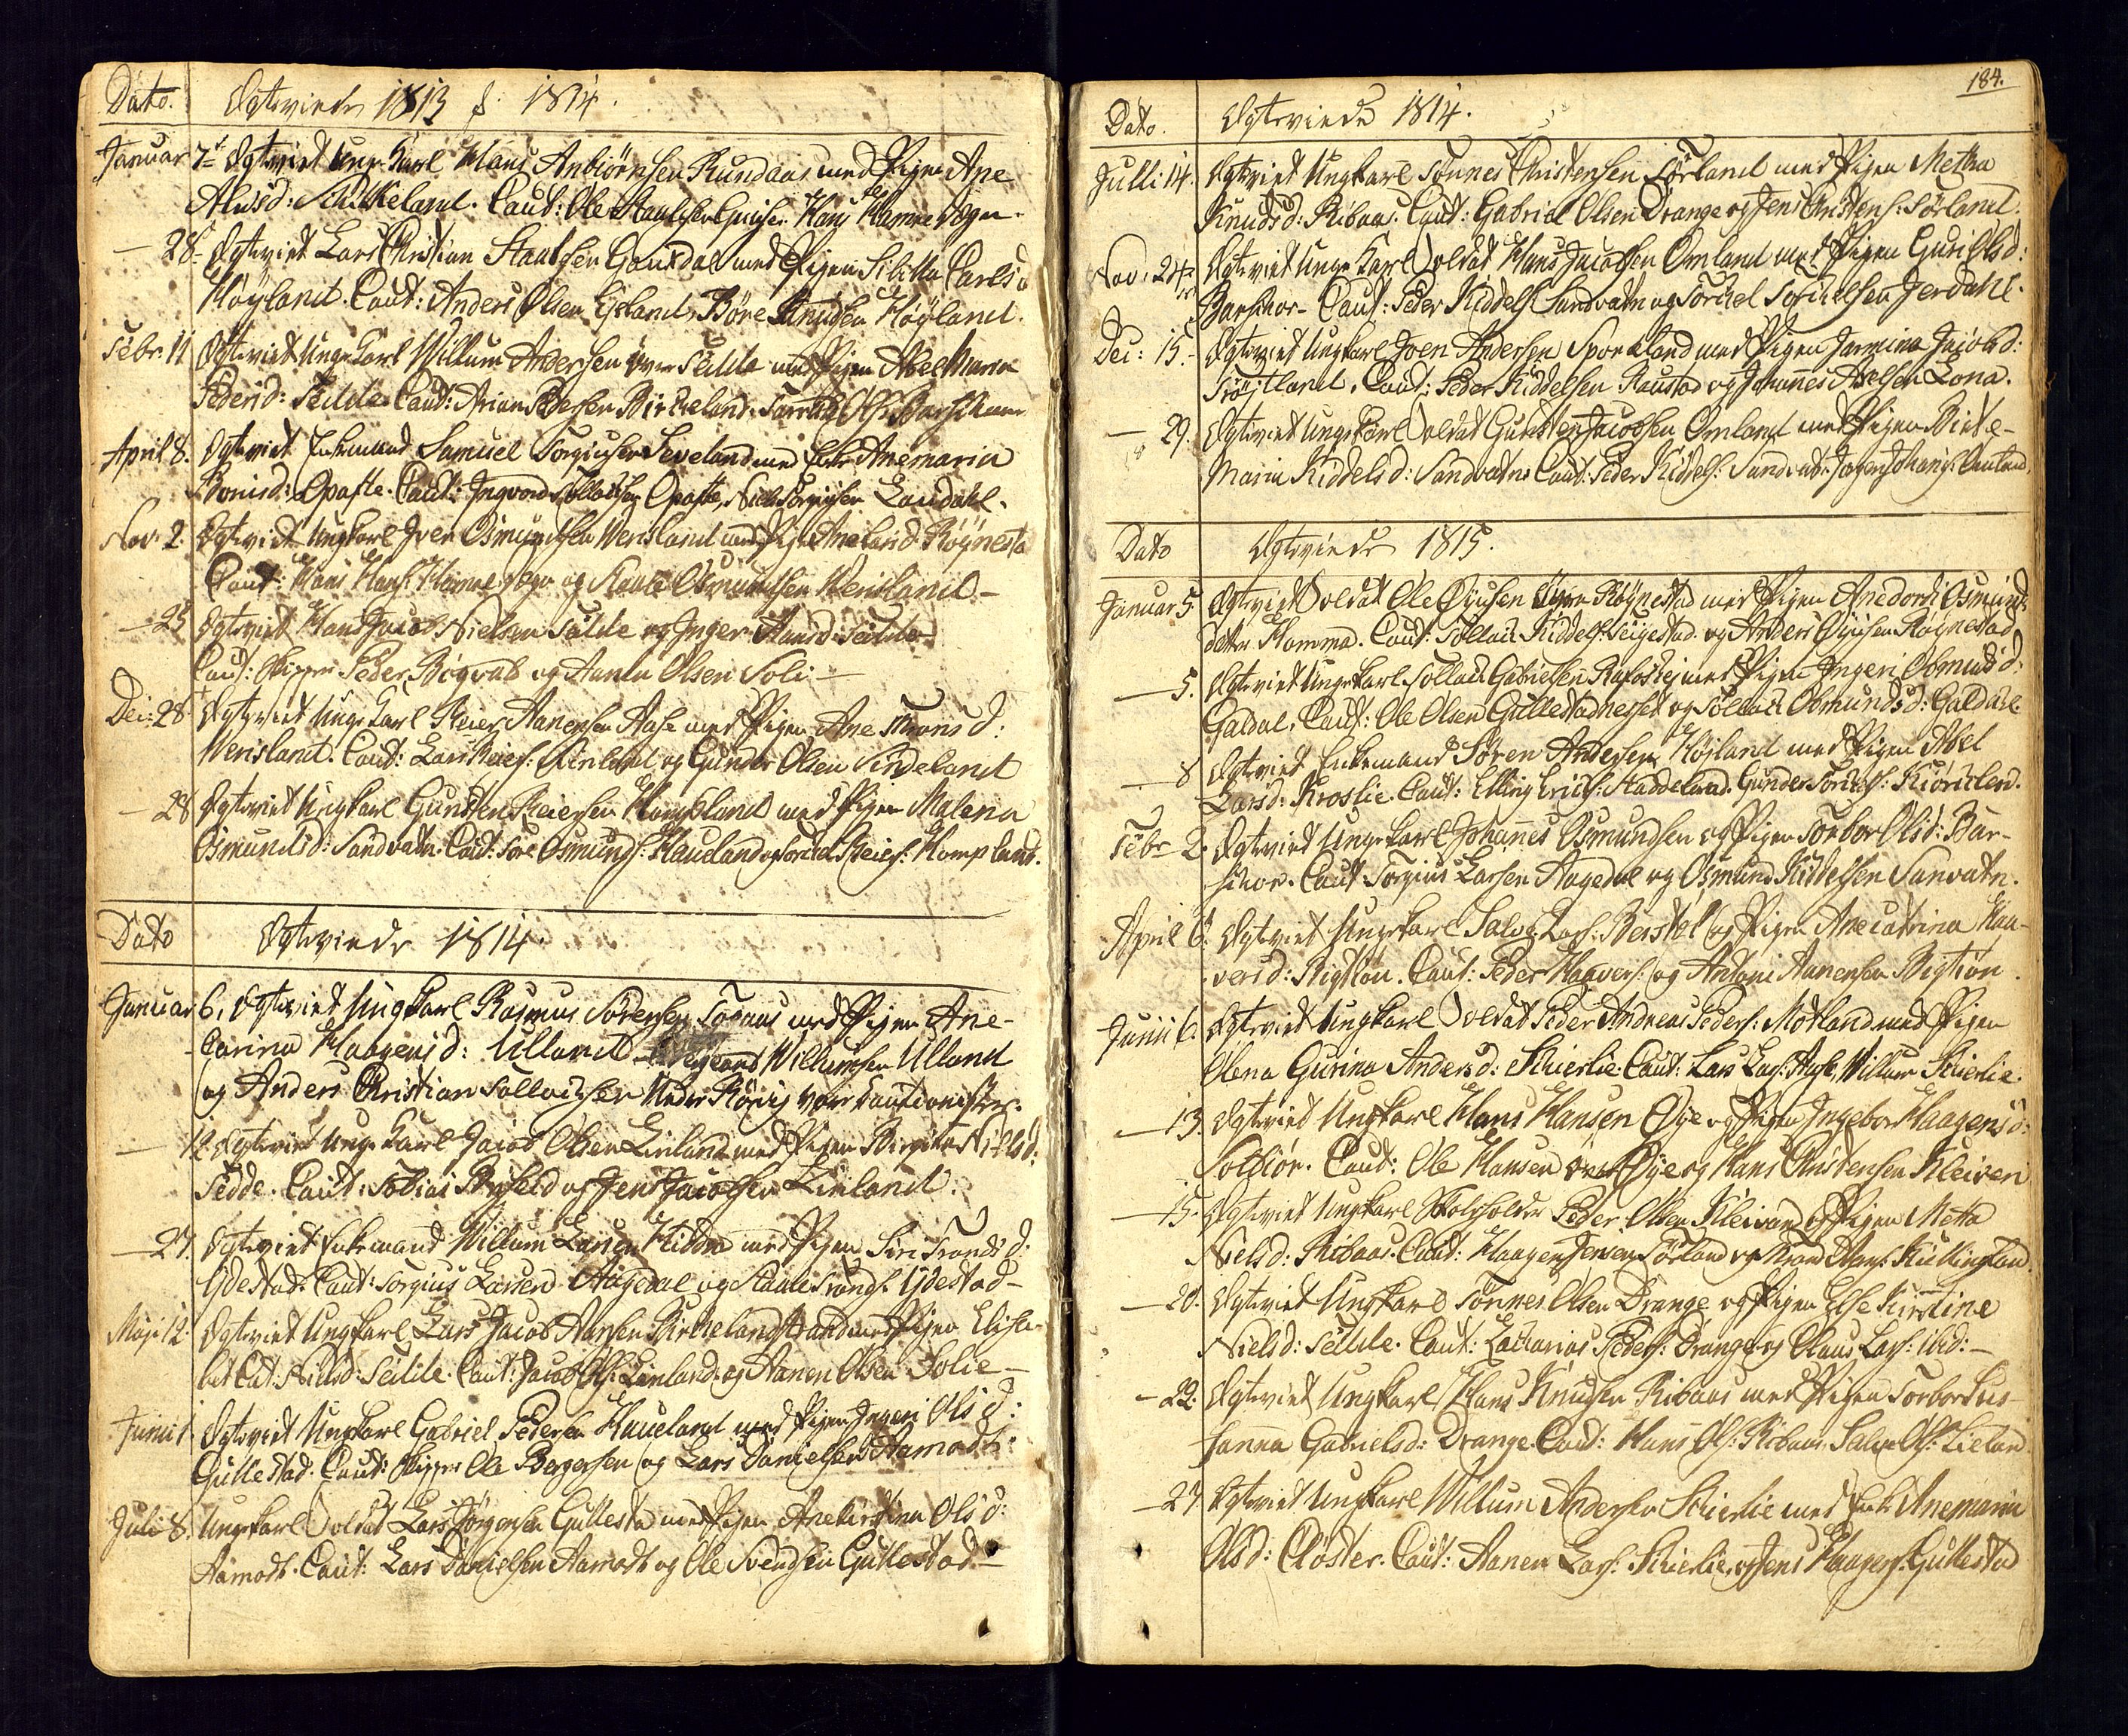 Dato. Egteviede 1813 & 1814.
Januar 7de Egteviet Unge Karl Hans Anbiörnsen Rundaas med Pigen Ane
Alvisd: Kulkeland. Caut: Ole Hans Hamre
— 28de Egteviet Lars Christian Staalesen Gausdal med Pigen Silella Carlsd
Höÿland. Caut: Anders Olsen Egeland, Böre Knudsen Höÿland.
Febr: 11 Egteviet Unge Karl Willum Andersen över Fedde med Pigen Abel Maria
Pedersd: Fedde. Caut: Arian Pedersen Birkeland,
April 8. Egteviet Enkemand Samuel Torgiusen Leveland med Enke Anemaria
Bonisd: Opofte. Caut: Ingvord Tollaksen Opofte, Niels Torgiusen Laudahl.
Nov: 2. Egteviet Ungkarl Iver Osmundsen Versland med Pige Ane Röÿnesta
Caut: Hans Hans: Hamre og Staale Osmundsen Versland —
— 25 Egteviet Hans Jacob Nielsen Fedde og Inger Hansd: Fedde
Caut: Skipper Peder Bögvald og Aanen Olsen Soli —
Dec: 28 Egteviet Unge Karl Reier Aanensen Aase med Pigen Ane Tronsd:
Versland. Caut: Lars Reiers: og Gunder Olsen Sindeland
— 28 Egteviet Ungkarl Gunsten Reiersen Kompland med Pigen Malena
Osmundsd: Sandvatn. Caut: Tore Osmunds: Haueland og Torkel Reiers: Kompland.
Dato Egteviede 1814.
Januar 6. Egteviet Ungkarl Rasmus Sörensen med Pigen Ane-
Carina Haagensd: Ulland Wilhemsen Ulland
og Anders Christian Tollaissen Neder Röriig vare Cautionister.
— 12. Egteviet Unge Karl Jacob Olsen Linland med Pigen Birgitta Nielsd:
Fedde. Caut: Tobias og Jens Jacobsen Linland.
— 27. Egteviet Enkemand Willum Larsen Hidden med Pigen Siri Trondsd:
Ydestad. Caut: Torgius Larsen Aagedal og Staale Tronds: Ydestad —
Maji 12. Egteviet Ungkarl Lars Jacob Hansen Birkelandstrand med Pigen Elisa-
bet Cat: Nielsd: Fedde. Caut: Jacob Ols: Linland og Aanen Olsen Solie —
Junii 1. Egteviet Ungkarl Gabriel Pedersen Haueland med Pigen Ingeri Olsd:
Gullestad. Caut: Skipper Ole Bergersen og Lars Danielsen Aamodt:
Juli 8. Ungkarl Soldat Lars Jörgensen Gullesta med Pigen Anekirstina Olsd:
Aamodt. Caut: Lars Danielsen Aamodt og Ole Svendsen Gullestad —
184.
Dato. Egteviede 1814.
Julli 14. Egteviet Ungkarl Tönnes Christensen Sörland med Pigen Metha
Knudsd: Ribaas. Caut: Gabriel Olsen Drange og Jens Christens: Sörland.
Nov: 24de Egteviet Unge Karl Soldat Hans Jacobsen Omland med Pigen Guri Olsd:
Barsnor — Caut: Peder Kiddels: Sandvatn og Torkel Torkelsen Jerdahl.
Dec: 15. Egteviet Ungkarl Joen Andersen Sporkland med Pigen Jarmina Jacobsd:
Tröstland. Caut: Peder Kiddelsen Raustad og Johannes Axelsen Lona.
— 29. Egteviet Ungkarl Soldat Gunsten Jacobsen Omland med Pigen Birte-
Maria Kiddelsd: Sandvatn. Caut: Peder Kiddels: Sandvatn,
Dato Egteviede 1815.
Januar 5 Egteviet Soldat Ole Öÿusen Röÿnestad med Pigen Anedorte Osmunds
datter Homma. Caut: Tollais Kiddels: Seigestad og Anders Öÿusen Röÿnestad
— 5. Egteviet Ungkarl Tollais Gabrielsen Rafoshei med Pigen Ingeri Osmundsd:
Galdal. Caut: Ole Olsen Gullestadnesset og Tollais Osmundsd: Galdal.
— 8 Egteviet Enkemand Sören Andersen Höÿland med Pigen Abel
Larsd: Kroslie. Caut: Elling Erichs: Haddeland. Gunder Torkels: Kiörkelien.
Febr 2. Egteviet Unge Karl Johannes Osmundsen og Pigen Torbor Olsd: Bar-
snor. Caut Torgius Larsen Aagedal og Osmund Kiddelsen Sanvatn.
April 6. Egteviet Ungkarl Salve Lars: Berstöl og Pigen Anecatrina Haa-
versd: Rigtiön. Caut: Peder Haavers: og Antoni Aanensen Rigtiön.
Junii 6. Egteviet Ungkarl Soldat Peder Andreas Peders: Motland med Pigen
Olena Gurina Andersd: Skierlie. Caut: Lars Lars: Aase, Willum Skierlie.
— 13. Egteviet Ungkarl Hans Hansen Öÿe og Pigen Ingebor Haagensd:
Solbiör. Caut: Ole Hansen över Öÿe og Hans Christensen Kleiven
— 15. Egteviet Ungkarl Skoleholder Peder Olsen Kleivan og Pigen Metta
Nielsd: Ribaas. Caut: Haagen Jensen Sörland og Hans: Kullingland.
— 20. Egteviet Ungkarl Tönnes Olsen Drange og Pigen Else Kirstine
Nielsd: Fedde. Caut: Zacharias Peders: Drange og Claus Lars: ibid: —
— 22. Egteviet Ungkarl Hans Knudsen Ribaas med Pigen Torbor Sus-
hanna Gabrielsd: Drange. Caut: Hans Ols: Ribaas, Salve Ols: Lieland
— 27 Egteviet Ungkarl Willum Andersen Skierlie med Enke Anemaria
Olsd: Closter. Caut: Aanen Lars: Skierlie og Jens Haagens: Gullestad